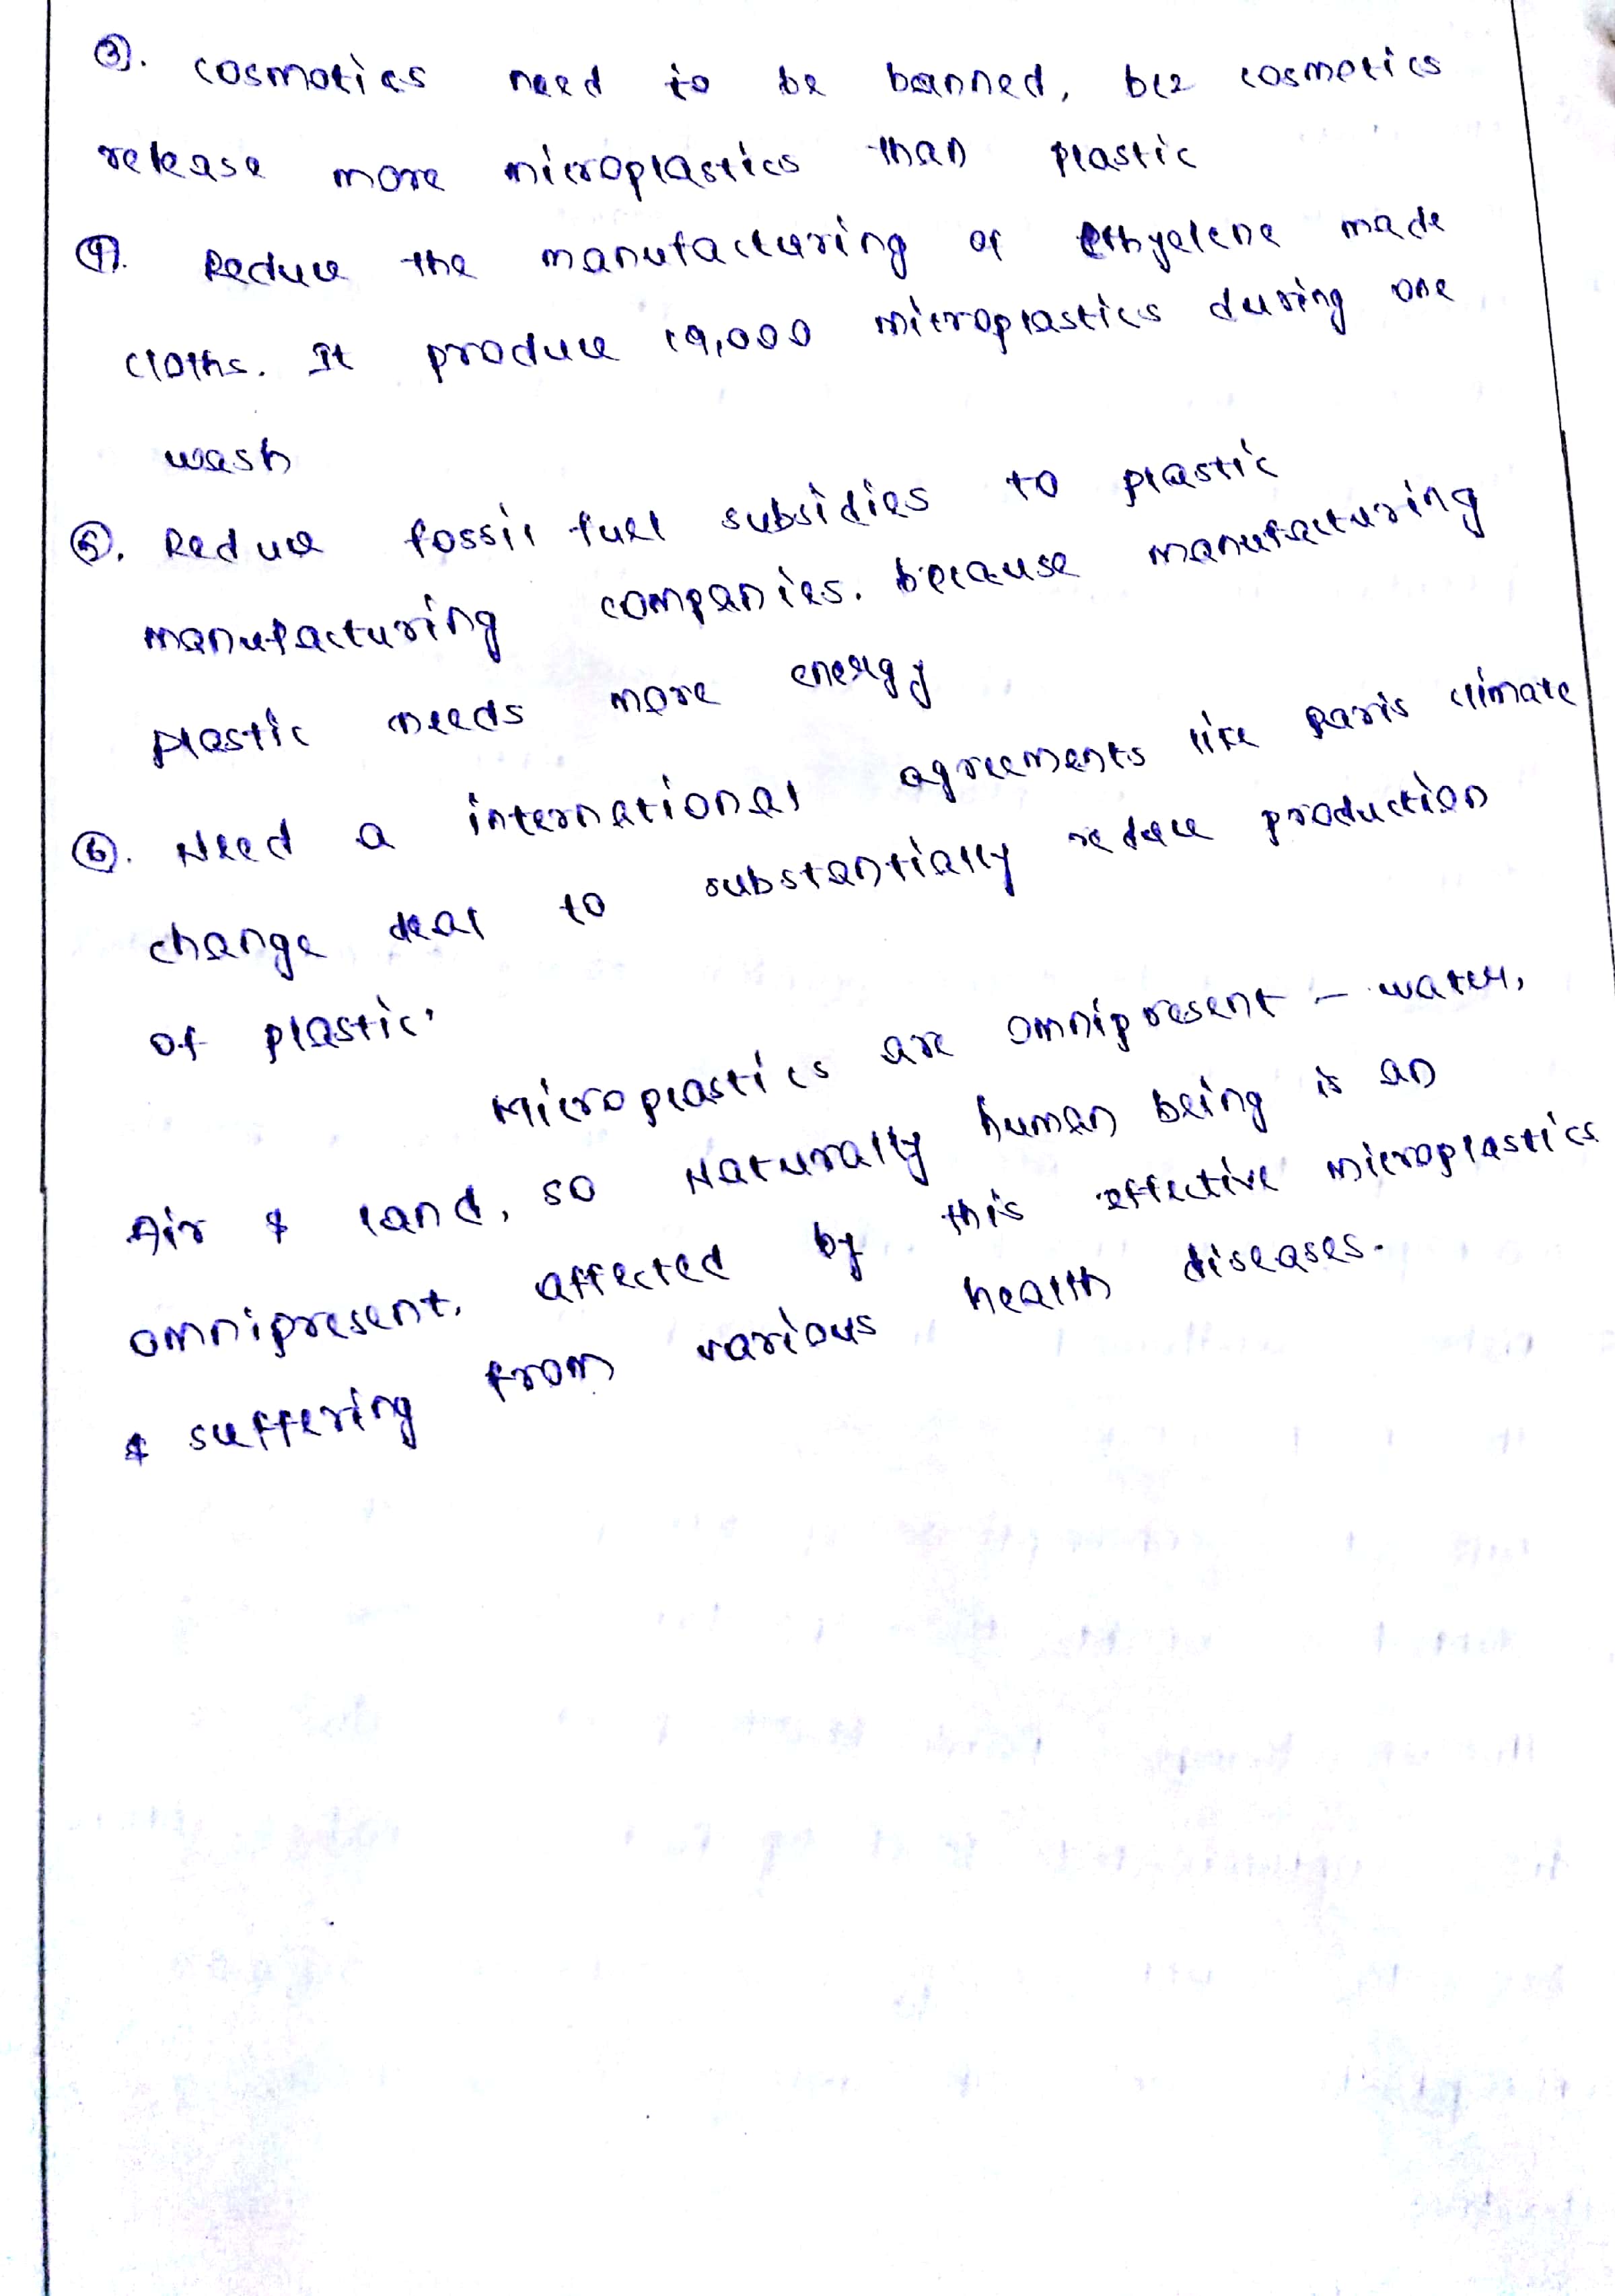 ③. cosmotics need to be banned, bcz cosmetics
release more microplastics than plastic
④. Reduce the manufacturing of ethyelene made
cloths. It produce 19,000 microplastics during one
wash
⑤. Reduce fossil fuel subsidies to plastic
manufacturing companies. because manufacturing
plastic needs more energy
⑥. Need a international agreements like paris climate
change deal to substantially reduce production
of plastic.
Microplastics are omnipresent - water,
Air & land, so Naturally human being is an
omnipresent, affected by this effective microplastics
& suffering from various health diseases.